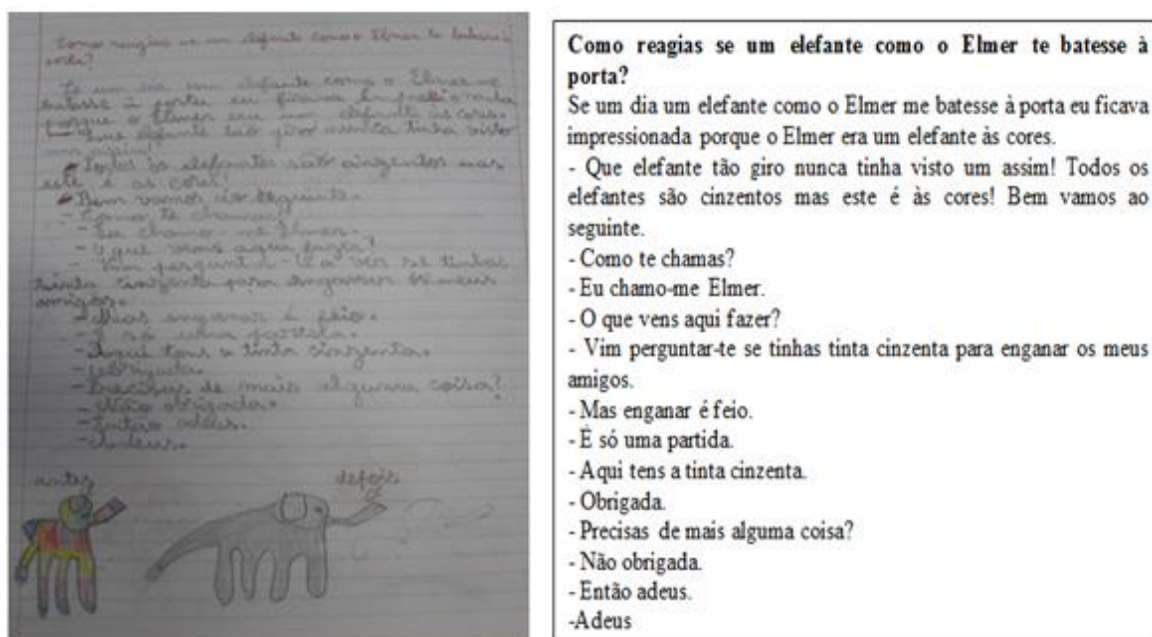 Como reagias se um elefante como o Elmer te batesse à
porta?
Se um dia um elefante como o Elmer me
batesse à porta eu ficava impressionada
porque o Elmer era um elefante às cores.
- Que elefante tão giro nunca tinha visto
um assim!
Todos os elefantes são cinzentos mas
este é as cores!
Bem vamos ao seguinte.
- Como te chamas?
- Eu chamo-me Elmer.
- O que vens aqui fazer?
- Vim perguntar-te a ver se tinhas
tinta cinzenta para enganar os meus
amigos.
- Mas enganar é feio.
- É só uma partida.
- Aqui tens a tinta cinzenta.
- Obrigada.
- Precisas de mais alguma coisa?
- Não obrigada.
- Então adeus.
- Adeus.
antes
depois
Como reagias se um elefante como o Elmer te batesse à
porta?
Se um dia um elefante como o Elmer me batesse à porta eu ficava
impressionada porque o Elmer era um elefante às cores.
- Que elefante tão giro nunca tinha visto um assim! Todos os
elefantes são cinzentos mas este é às cores! Bem vamos ao
seguinte.
- Como te chamas?
- Eu chamo-me Elmer.
- O que vens aqui fazer?
- Vim perguntar-te se tinhas tinta cinzenta para enganar os meus
amigos.
- Mas enganar é feio.
- É só uma partida.
- Aqui tens a tinta cinzenta.
- Obrigada.
- Precisas de mais alguma coisa?
- Não obrigada.
- Então adeus.
-Adeus